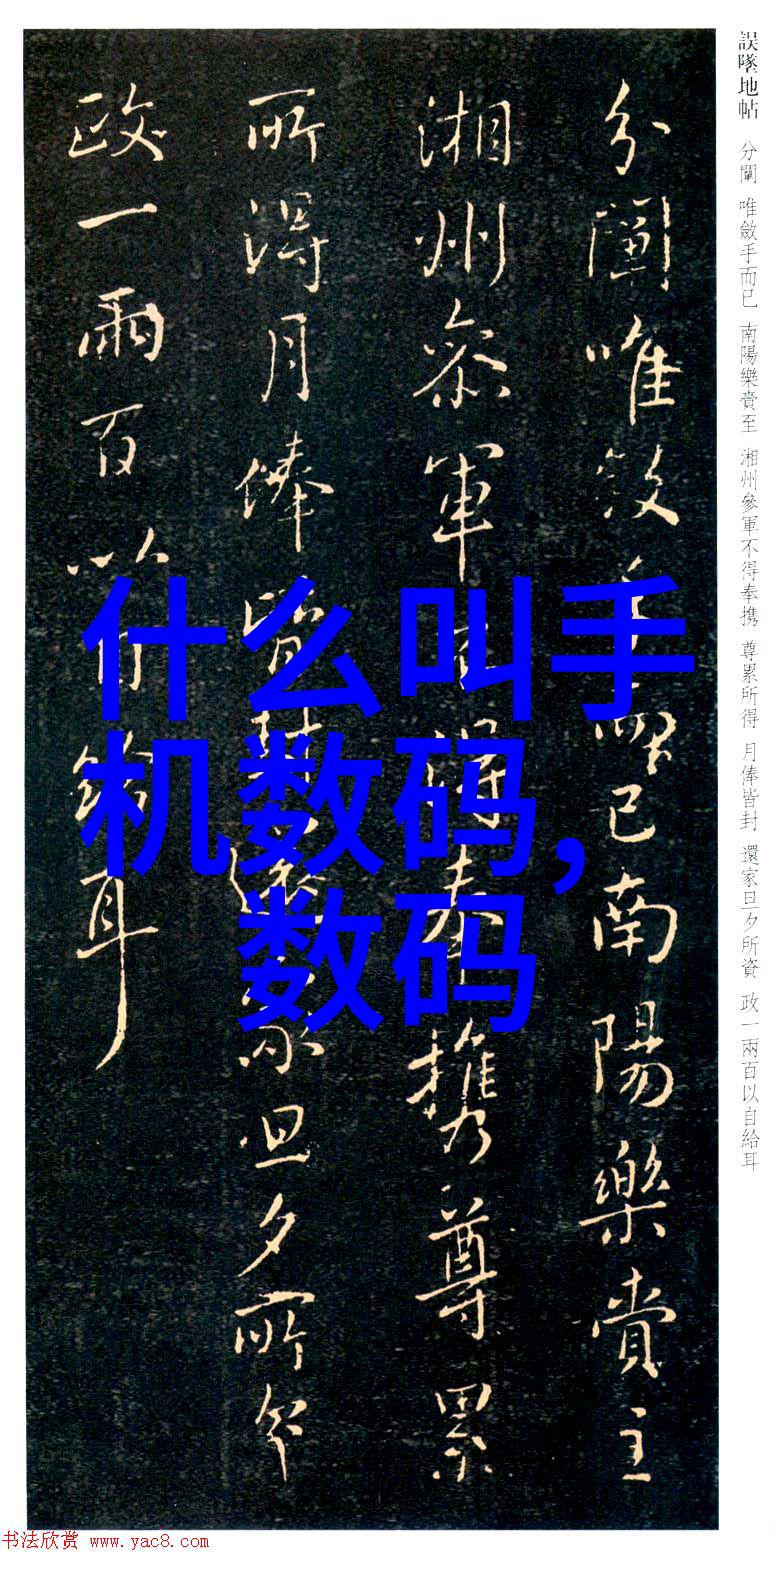 誤墜地帖 分闈 唯斂手而已 南陽樂賚至 湘州參軍不得奉携 尊累所得 月俸皆封 還家旦夕所資 政一兩百以自給耳
分闈唯斂手而已南陽樂賚至
湘州參軍不得奉携尊累
所得月俸皆封還家旦夕所資
政一兩百以自給耳
什么叫手
机数码,
数码
书法欣赏 www.yac8.com